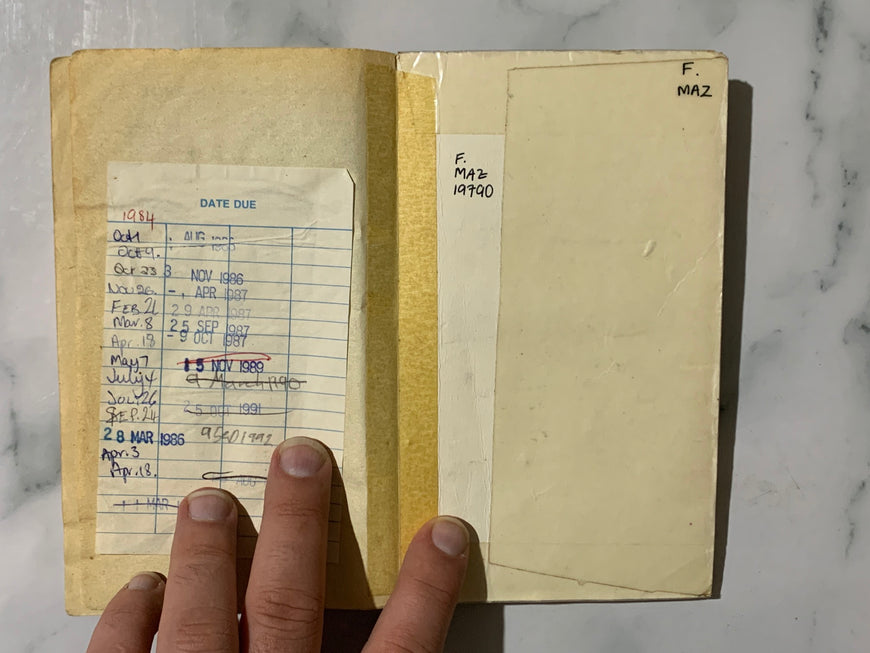 DATE DUE
1984
Oct 1
Oct 9.
Oct 23
Nov 26.
FEB 21
Mar. 8
Apr. 18
May 7
July 4
JUL 26
SEP. 24
28 MAR 1986
Apr. 3
Apr. 18.
11 MAR
AUG 1986
3 NOV 1986
-1 APR 1987
29 APR 1987
25 SEP 1987
-9 OCT 1987
15 NOV 1989
9 March 1990
25 OCT 1991
1992
AUG
F.
MAZ
19790
F.
MAZ